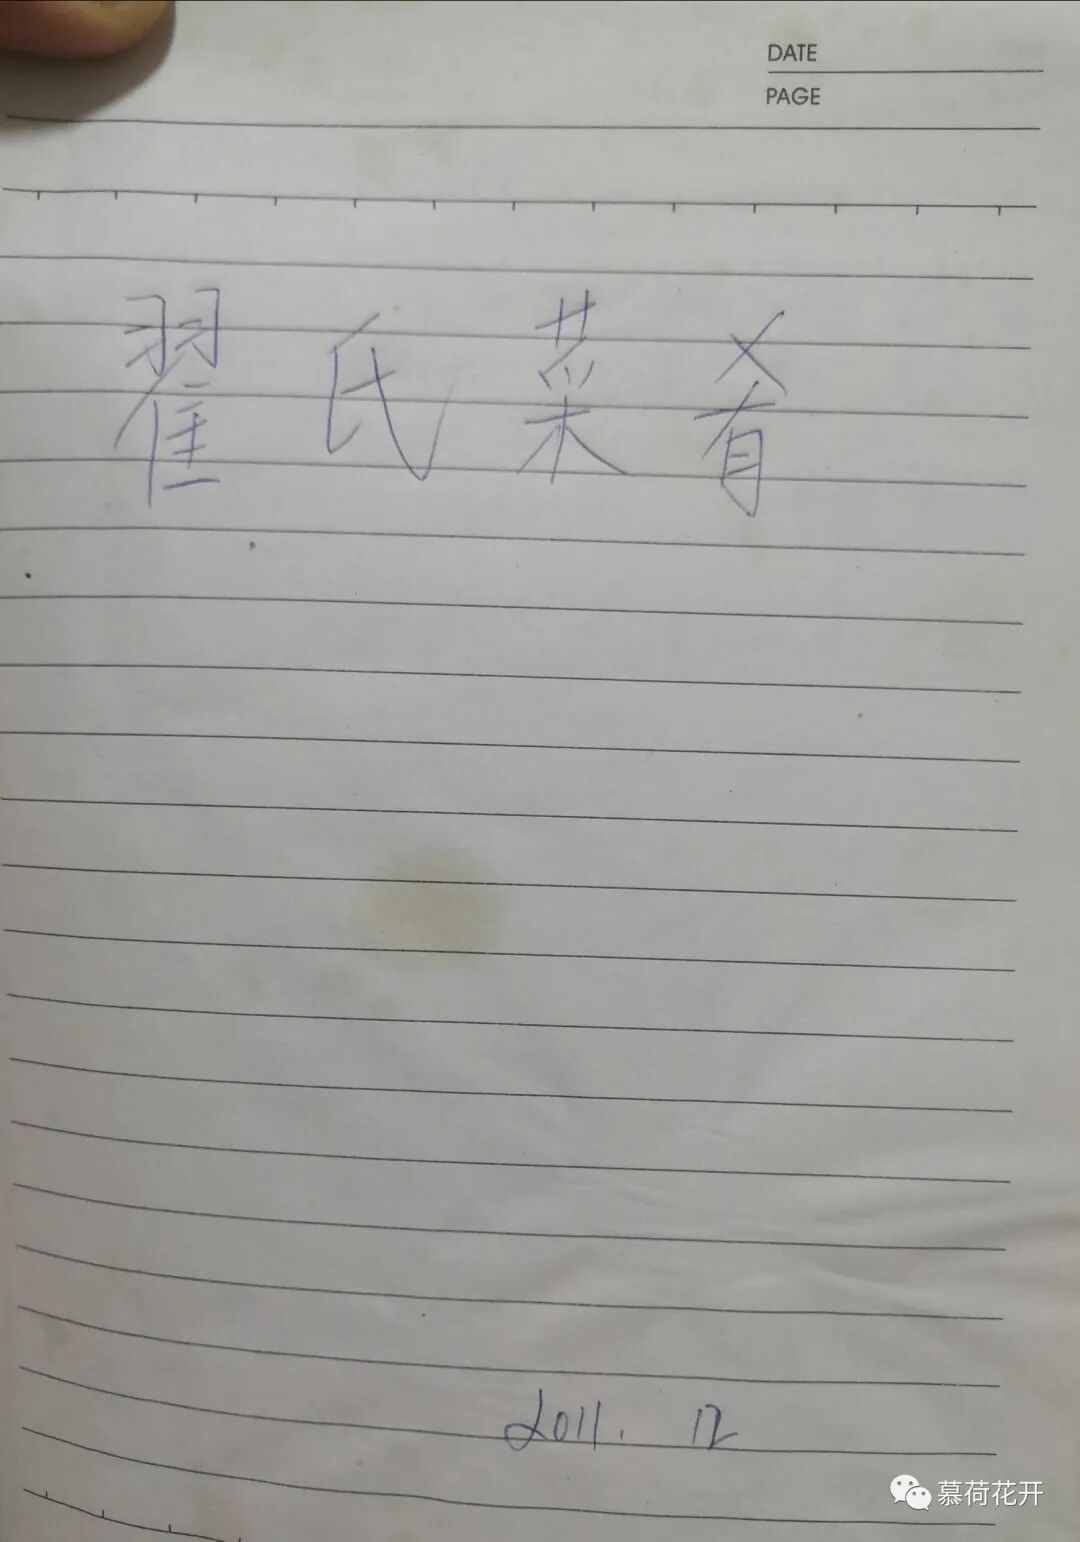 DATE
PAGE
翟氏菜肴
2011. 12
慕荷花开